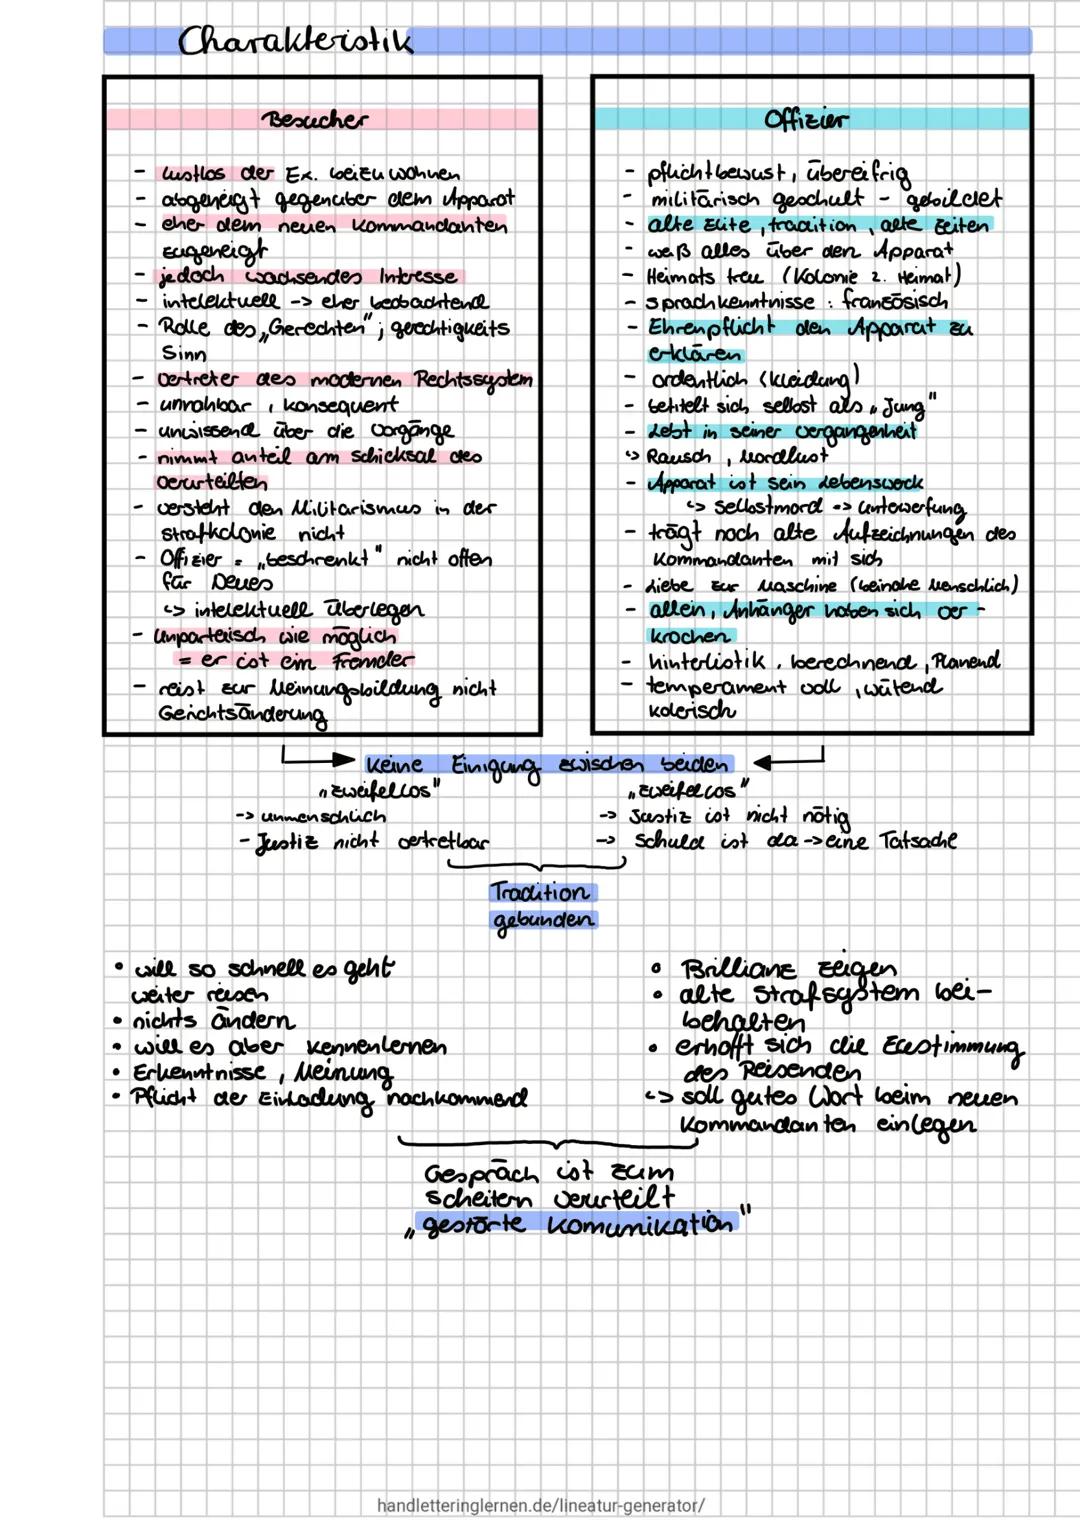 Charakteristik
Besucher
- lustlos der Ex. beizuwohnen
- abgeneigt gegenüber dem Apparat
- eher dem neuen Kommandanten
zugeneigt
- jedoch wachsendes Intresse
- intelektuell -> eher beobachtend
- Rolle des „Gerechten"; gerechtigkeits
Sinn
- Vertreter des modernen Rechtssystem
- unnahbar, konsequent
- unwissend über die Vorgänge
- nimmt anteil am Schicksal des
Verurteilten
- versteht den Militarismus in der
strafkolonie nicht
- Offizier = „beschrenkt" nicht offen
für Neues
↳ intelektuell überlegen
- Unparteiisch wie möglich
= er ist ein Fremder
- reist zur Meinungsbildung nicht
Gerichtsänderung
Offizier
- pflichtbewust, übereifrig
- militärisch geschult - gebildet
- alte Elite, tradition, alte Zeiten
- weiß alles über den Apparat
- Heimats treu (Kolonie 2. Heimat)
- sprachkenntnisse: französisch
- Ehrenpflicht den Apparat zu
erklären
- ordentlich (kleidung)
- betitelt sich selbst als „Jung"
- Lebt in seiner vergangenheit
↳ Rausch, Mordlust
- Apparat ist sein Lebenswerk
↳ selbstmord -> Unterwerfung
- trägt noch alte Aufzeichnungen des
Kommandanten mit sich
- Liebe zur Maschine (beinahe Menschlich)
- allein, Anhänger haben sich ver-
krochen
- hinterlistik, berechnend, Planend
- temperament voll, wütend
kolerisch
Keine Einigung zwischen beiden
„zweifellos"
-> unmenschlich
- Justiz nicht vertretbar
„zweifellos"
-> Justiz ist nicht nötig
-> Schuld ist da -> eine Tatsache
Tradition
gebunden
• will so schnell es geht
weiter reisen
• nichts ändern
• will es aber kennenlernen
• Erkenntnisse, Meinung
• Pflicht der Einladung nachkommend
• Brillianz zeigen
• alte Strafsystem bei-
behalten
• erhofft sich die Zustimmung
des Reisenden
↳ soll gutes Wort beim neuen
Kommandanten einlegen
Gespräch ist zum
scheitern verurteilt
„gestörte Komunikation"
handletteringlernen.de/lineatur-generator/